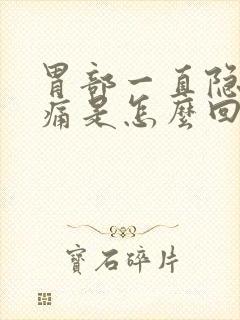 胃部一直隐
痛是怎麼回
寶石碎片